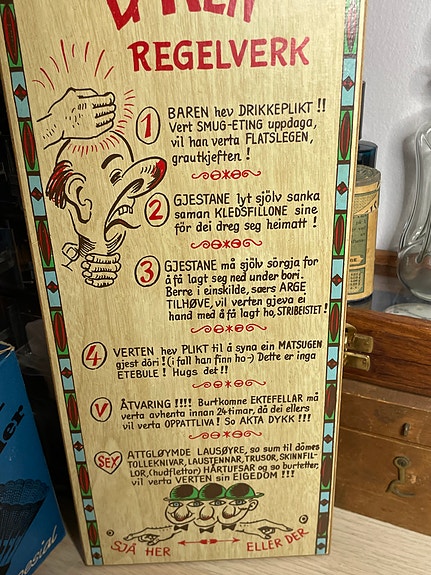 REGELVERK
1
BAREN hev DRIKKEPLIKT !!
Vert SMUG-ETING uppdaga,
vil han verta FLATSLEGEN,
grautkjeften !
2
GJESTANE lyt sjölv sanka
saman KLEDSFILLONE sine
för dei dreg seg heimatt !
3
GJESTANE må sjölv sörgja for
å få lagt seg ned under bori.
Berre i einskilde, særs ARGE
TILHØVE, vil verten gjeva ei
hand med å få lagt ho, STRIBEISTET !
4
VERTEN hev PLIKT til å syna ein MATSUGEN
gjest döri ! (i fall han finn ho-) Dette er inga
ETEBULE ! Hugs det !!
V
ÅTVARING !!!! Burtkomne EKTEFELLAR må
verta avhenta innan 24 timar, då dei ellers
vil verta OPPATTLIVA ! So AKTA DYKK !!!
SEX
ATTGLØYMDE LAUSØYRE, so sum til dömes
TOLLEKNIVAR, LAUSTENNAR, TRUSOR, SKINNFIL-
LOR, (hudflettor) HÅRTUFSAR og so burtetter,
vil verta VERTEN sin EIGEDOM !!!
SJÅ HER
ELLER DER